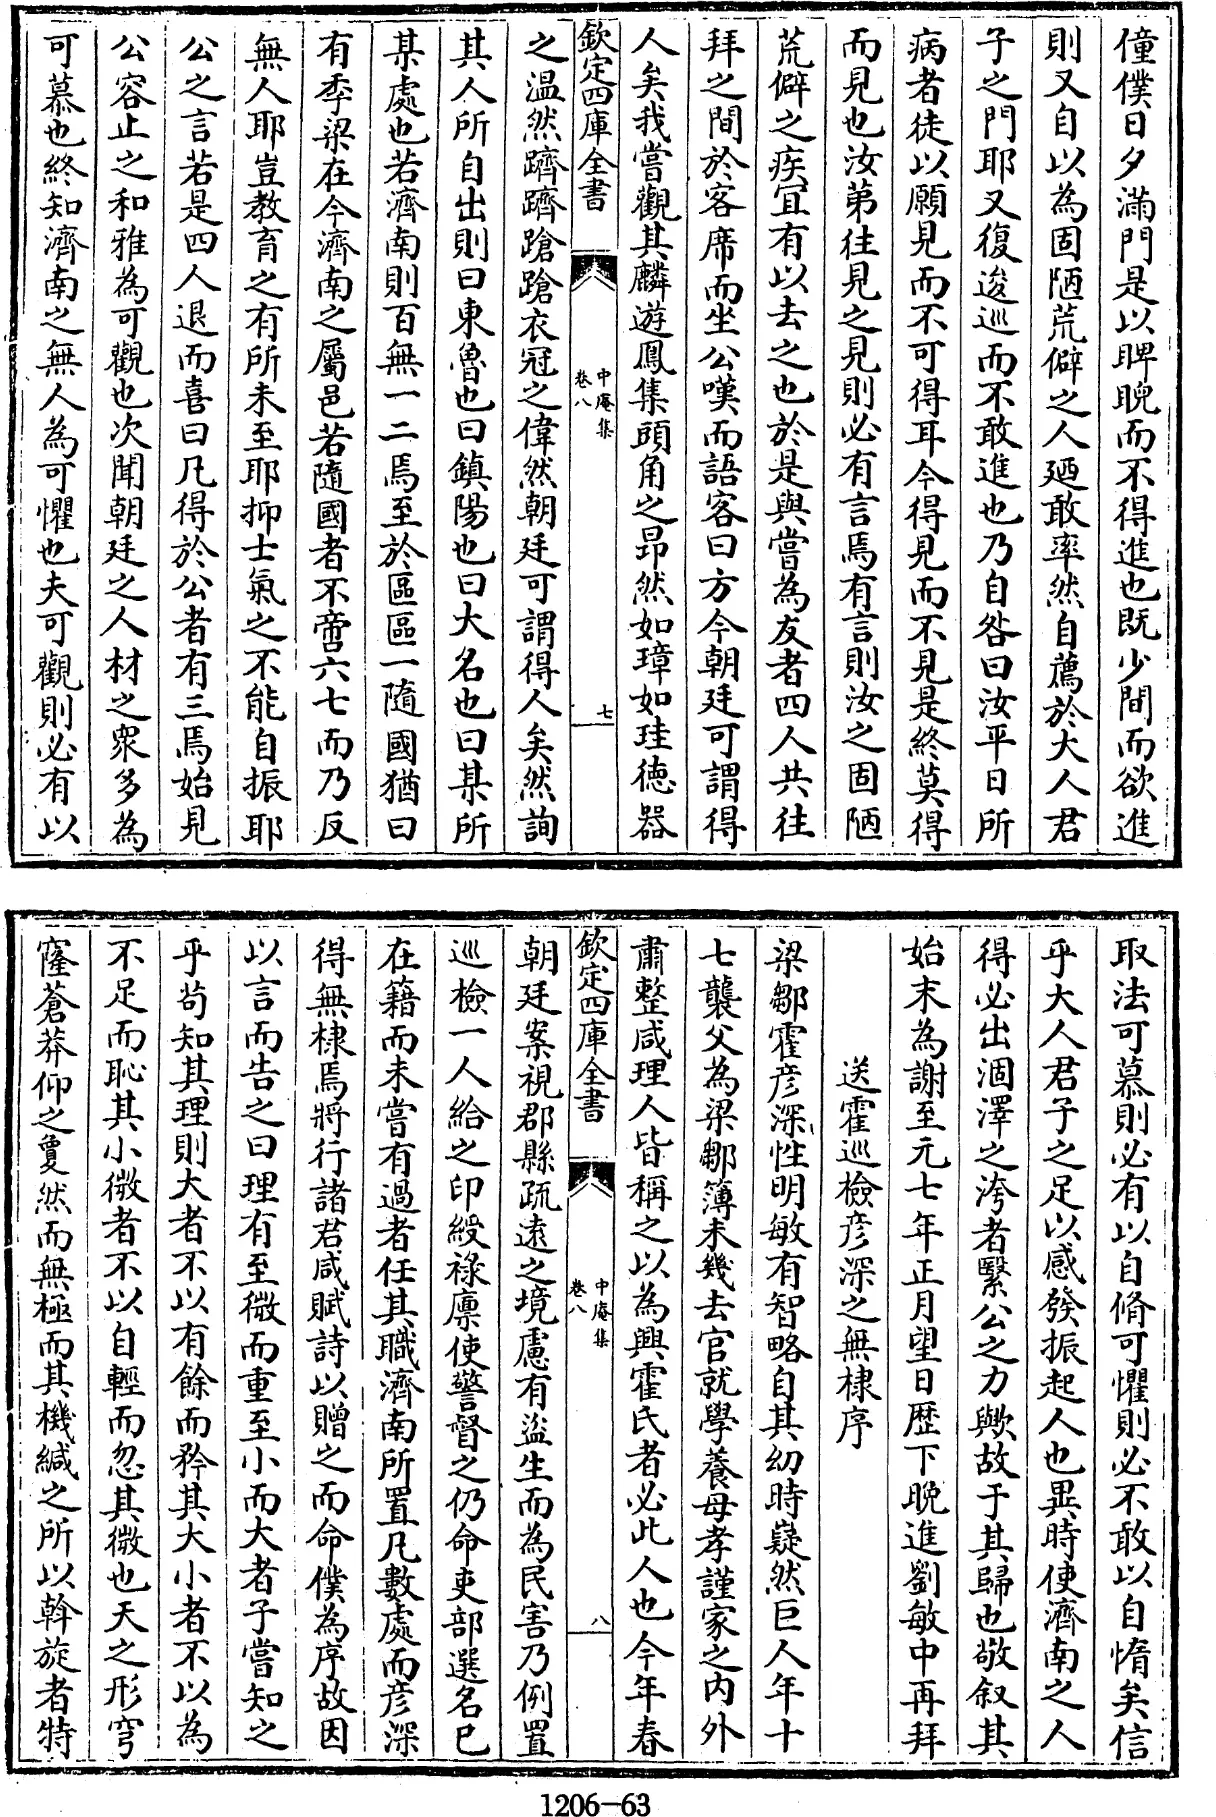 僮僕日夕滿門是以睥睨而不得進也既少間而欲進
則又自以為固陋荒僻之人廼敢率然自薦於大人君
子之門耶又復逡巡而不敢進也乃自咎曰汝平日所
病者徒以願見而不可得耳今得見而不見是終莫得
而見也汝第往見之見則必有言焉有言則汝之固陋
荒僻之疾宜有以去之也於是與嘗為友者四人共往
拜之間於客席而坐公嘆而語客曰方今朝廷可謂得
人矣我嘗觀其麟遊鳳集頭角之昂然如璋如珪德器
欽定四庫全書
中庵集
卷八
七
之温然躋躋蹌蹌衣冠之偉然朝廷可謂得人矣然詢
其人所自出則曰東魯也曰鎮陽也曰大名也曰某所
某處也若濟南則百無一二焉至於區區一隨國猶曰
有季梁在今濟南之屬邑若隨國者不啻六七而乃反
無人耶豈教育之有所未至耶抑士氣之不能自振耶
公之言若是四人退而喜曰凡得於公者有三焉始見
公容止之和雅為可觀也次聞朝廷之人材之衆多為
可慕也終知濟南之無人為可懼也夫可觀則必有以
取法可慕則必有以自脩可懼則必不敢以自惰矣信
乎大人君子之足以感發振起人也異時使濟南之人
得必出涸澤之洿者繄公之力歟故于其歸也敬叙其
始末為謝至元七年正月望日歴下晚進劉敏中再拜
送霍巡檢彦深之無棣序
梁鄒霍彦深性明敏有智略自其幼時嶷然巨人年十
七襲父為梁鄒簿未幾去官就學養母孝謹家之内外
肅整咸理人皆稱之以為興霍氏者必此人也今年春
欽定四庫全書
中庵集
卷八
八
朝廷案視郡縣疏遠之境慮有盜生而為民害乃例置
巡檢一人給之印綬祿廪使警督之仍命吏部選名已
在籍而未嘗有過者任其職濟南所置凡數處而彦深
得無棣焉將行諸君咸賦詩以贈之而命僕為序故因
以言而告之曰理有至微而重至小而大者子嘗知之
乎苟知其理則大者不以有餘而矜其大小者不以為
不足而恥其小微者不以自輕而忽其微也天之形穹
窿蒼莽仰之敻然而無極而其機緘之所以斡旋者特
1206-63